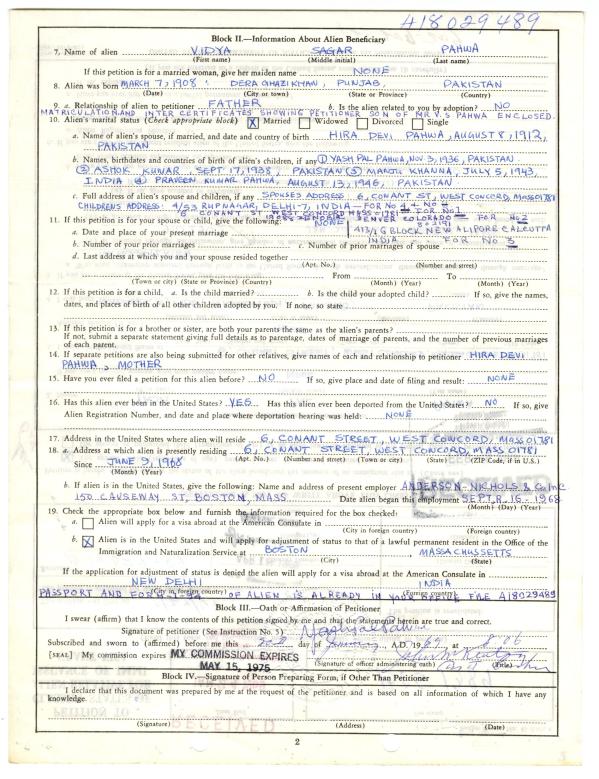 418029489
Block II.—Information About Alien Beneficiary
7. Name of alien VIDYA SAGAR PAHWA
(First name) (Middle initial) (Last name)
If this petition is for a married woman, give her maiden name NONE
8. Alien was born MARCH 7, 1908 : DERA GHAZI KHAN, PUNJAB, PAKISTAN
(Date) (City or town) (State or Province) (Country)
9. a. Relationship of alien to petitioner FATHER b. Is the alien related to you by adoption? NO
MATRICULATION AND INTER CERTIFICATES SHOWING PETITIONER SON OF MR V.S PAHWA ENCLOSED.
10. Alien's marital status (Check appropriate block) X Married Widowed Divorced Single
a. Name of alien's spouse, if married, and date and country of birth HIRA DEVI PAHWA, AUGUST 8, 1912,
PAKISTAN
b. Names, birthdates and countries of birth of alien's children, if any ① YASH PAL PAHWA, NOV 3, 1936, PAKISTAN
② ASHOK KUMAR SEPT 17, 1938, PAKISTAN ③ MANJU KHANNA, JULY 5, 1943,
INDIA ④ PRAVEEN KUMAR PAHWA, AUGUST 13, 1946, PAKISTAN
c. Full address of alien's spouse and children, if any SPOUSES ADDRESS 6, CONANT ST, WEST CONCORD, MASS 01781
CHILDRENS ADDRESS: 4/53 RUPNAGAR, DELHI-7, INDIA - FOR No 4
6 CONANT ST. WEST CONCORD MASS-1781 FOR No 1
DENVER COLORADO FOR No 2
11. If this petition is for your spouse or child, give the following: NONE
413/1 G BLOCK NEW ALIPORE CALCUTTA
a. Date and place of your present marriage
INDIA - FOR No 3
b. Number of your prior marriages c. Number of prior marriages of spouse
d. Last address at which you and your spouse resided together
(Apt. No.) (Number and street)
From To
(Town or city) (State or Province) (Country) (Month) (Year) (Month) (Year)
12. If this petition is for a child, a. Is the child married? b. Is the child your adopted child? If so, give the names,
dates, and places of birth of all other children adopted by you. If none, so state
13. If this petition is for a brother or sister, are both your parents the same as the alien's parents?
If not, submit a separate statement giving full details as to parentage, dates of marriage of parents, and the number of previous marriages
of each parent.
14. If separate petitions are also being submitted for other relatives, give names of each and relationship to petitioner HIRA DEVI
PAHWA, MOTHER
15. Have you ever filed a petition for this alien before? NO If so, give place and date of filing and result: NONE
16. Has this alien ever been in the United States? YES Has this alien ever been deported from the United States? NO If so, give
Alien Registration Number, and date and place where deportation hearing was held: NONE
17. Address in the United States where alien will reside 6, CONANT STREET, WEST COWCORD, MASS 01781
18. a. Address at which alien is presently residing 6, CONANT STREET, WEST CONCORD, MASS 01781
(Apt. No.) (Number and street) (Town or city) (State) (ZIP Code, if in U.S.)
Since JUNE 9, 1968
(Month) (Year)
b. If alien is in the United States, give the following: Name and address of present employer ANDERSON-NICHOLS & Co. Inc
150 CAUSEWAY ST, BOSTON, MASS Date alien began this employment SEPTR. 16 - 1968
(Month) (Day) (Year)
19. Check the appropriate box below and furnish the information required for the box checked:
a. Alien will apply for a visa abroad at the American Consulate in
(City in foreign country) (Foreign country)
b. X Alien is in the United States and will apply for adjustment of status to that of a lawful permanent resident in the Office of the
Immigration and Naturalization Service at BOSTON MASSACHUSSETTS
(City) (State)
If the application for adjustment of status is denied the alien will apply for a visa abroad at the American Consulate in
NEW DELHI INDIA
(City in foreign country) (Foreign country)
PASSPORT AND FORM I-94 OF ALIEN IS ALREADY IN YOUR OFFICE FILE A18029489
Block III.—Oath or Affirmation of Petitioner
I swear (affirm) that I know the contents of this petition signed by me and that the statements herein are true and correct.
Signature of petitioner (See Instruction No. 5)
Subscribed and sworn to (affirmed) before me this day of January, A.D. 1969, at
[SEAL] My commission expires MY COMMISSION EXPIRES
MAY 15, 1975
(Signature of officer administering oath) (Title)
Block IV.—Signature of Person Preparing Form, if Other Than Petitioner
I declare that this document was prepared by me at the request of the petitioner and is based on all information of which I have any
knowledge.
(Signature) (Address) (Date)
RECEIVED
2